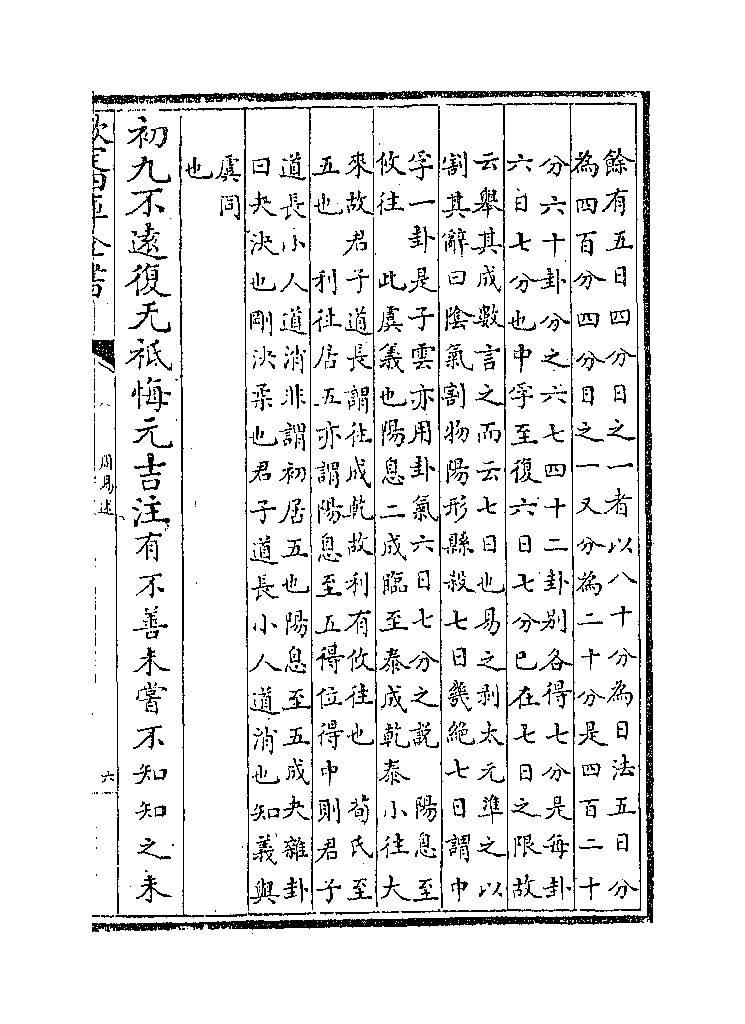 餘有五日四分日之一者以八十分為日法五日分
為四百分四分日之一又分為二十分是四百二十
分六十卦分之六七四十二卦别各得七分是每卦
六日七分也中孚至復六日七分已在七日之限故
云舉其成數言之而云七日也易之剥太元準之以
割其辭曰陰氣割物陽形縣殺七日幾絶七日謂中
孚一卦是子雲亦用卦氣六日七分之說　陽息至
攸往　此虞義也陽息二成臨至泰成乾泰小往大
來故君子道長謂往成乾故利有攸往也　荀氏至
五也　利往居五亦謂陽息至五得位得中則君子
道長小人道消非謂初居五也陽息至五成夬雜卦
曰夬決也剛決柔也君子道長小人道消也知義與
虞同
也
初九不遠復无祗悔元吉注有不善未嘗不知知之未
欽定四庫全書
周易述
六